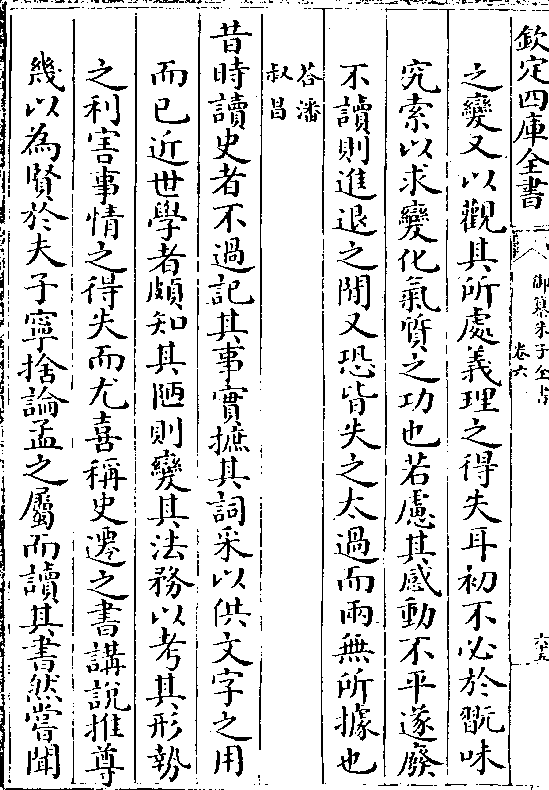 欽定四庫全書
御纂朱子全書
卷六
六五
之變又以觀其所處義理之得失耳初不必於翫味
究索以求變化氣質之功也若慮其感動不平遂廢
不讀則進退之閒又恐皆失之太過而兩無所據也
荅潘
叔昌
昔時讀史者不過記其事實摭其詞采以供文字之用
而已近世學者頗知其陋則變其法務以考其形勢
之利害事情之得失而尤喜稱史遷之書講說推尊
幾以為賢於夫子寧捨論孟之屬而讀其書然嘗聞